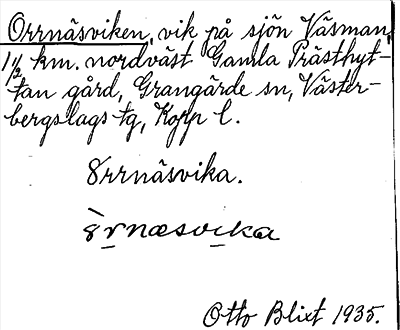 Orrnäsviken, vik på sjön Väsman,
1 1/2 km. nordväst Gamla Prästhyt-
tan gård, Grangärde sn, Väster-
bergslags tg, Kopp l.
Örrnäsvika.
Otto Blixt 1935.